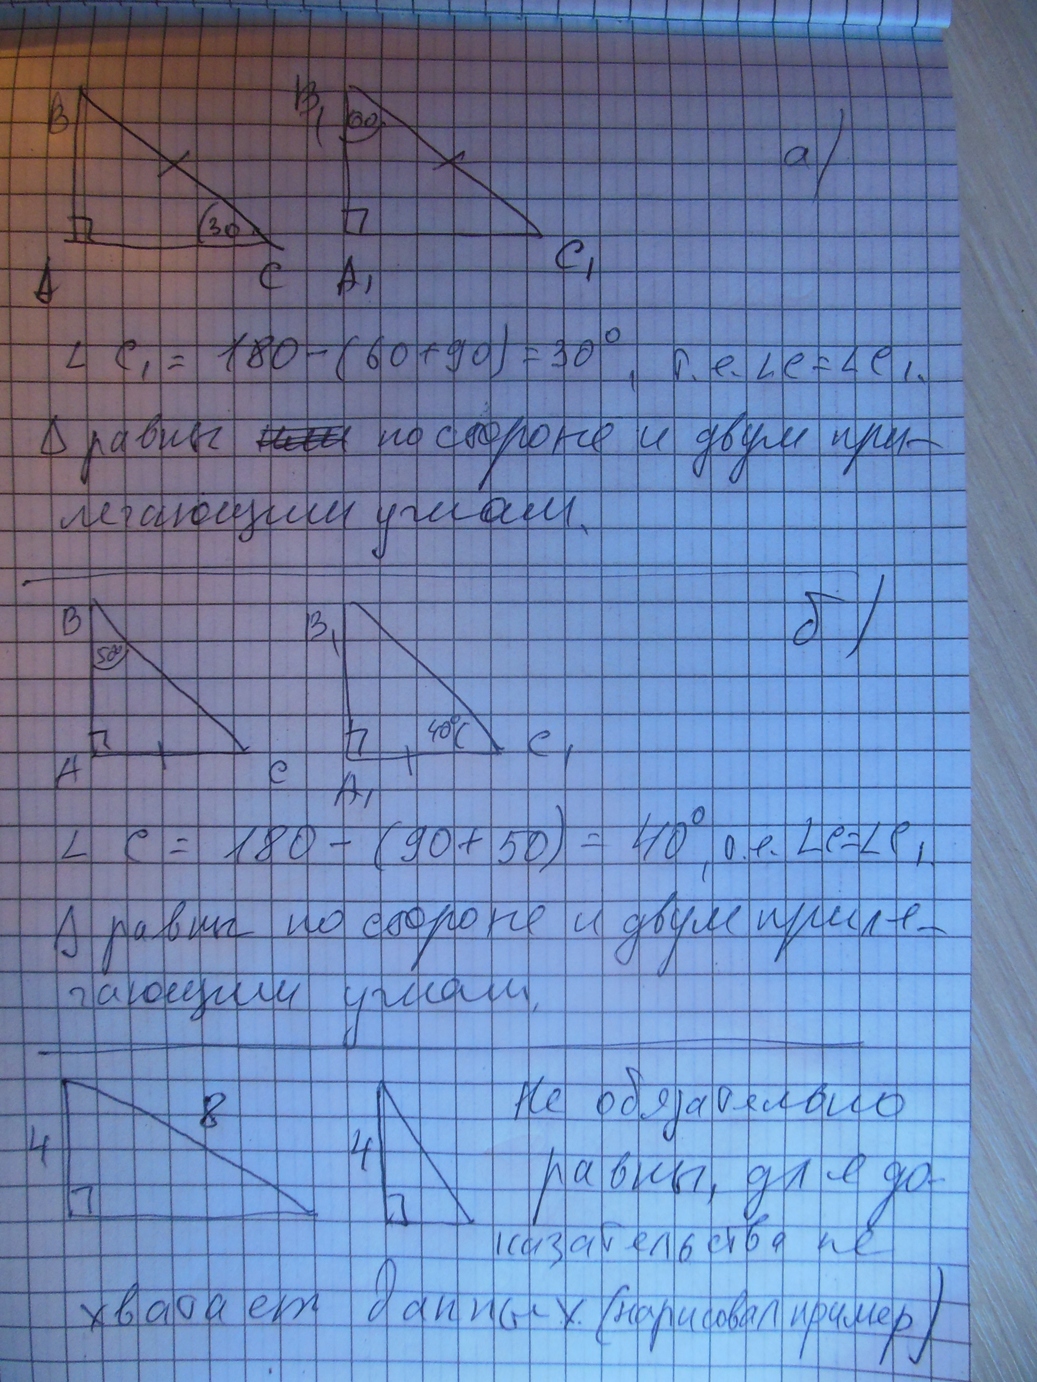 В В₁ 60 а)
30
А С А₁ С₁
∠ С₁ = 180 – (60+90) = 30⁰, т.е. ∠С=∠С₁.
Δ равны по стороне и двум при-
легающим углам.
В В₁ б)
50⁰
40⁰
А С А₁ С₁
∠ С = 180 – (90+50) = 40⁰, т.е. ∠С=∠С₁.
Δ равны по стороне и двум приле-
гающим углам.
4 8 4 Не обязательно
равны, для до-
казательства не
хватает данных. (нарисовал пример)